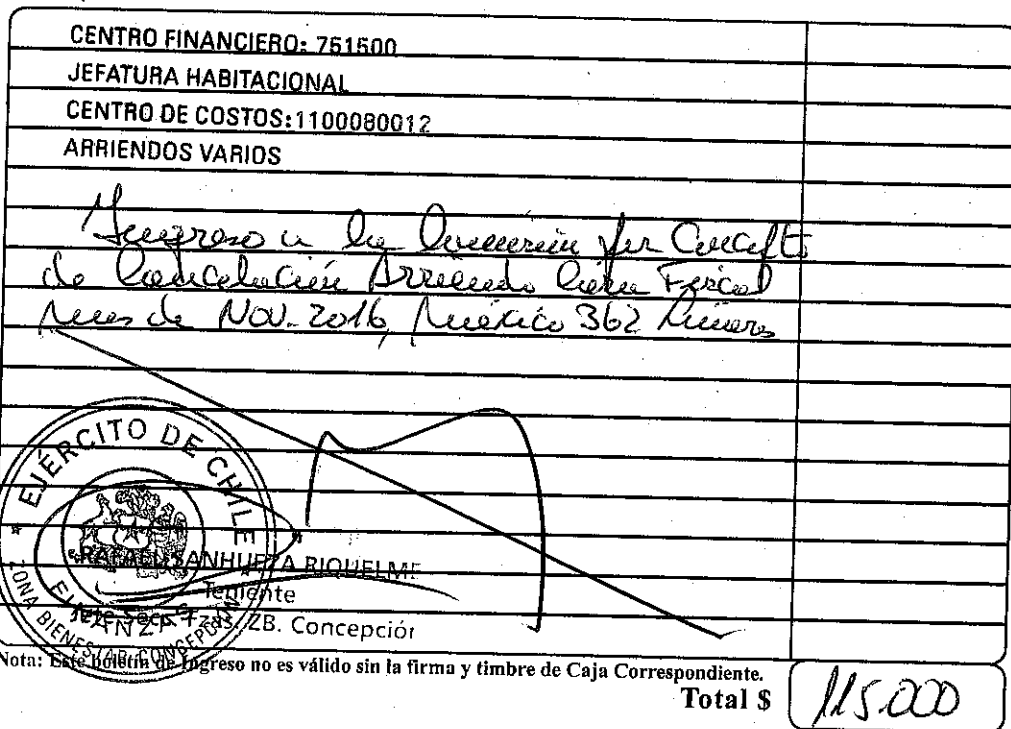 CENTRO FINANCIERO: 751500
JEFATURA HABITACIONAL
CENTRO DE COSTOS:1100080012
ARRIENDOS VARIOS
Ingreso a la por Concepto
de Cancelación Arriendo Fiscal
Mes de NOV. 2016, México 362 Linares
EJÉRCITO DE CHILE
FINANZAS
ZONA BIENESTAR CONCEPCIÓN
RAFAEL SANHUEZA RIQUELME
Teniente
Jefe Secc. Fzas. ZB. Concepción
Nota: Este boletín de Ingreso no es válido sin la firma y timbre de Caja Correspondiente.
Total $ 115.000